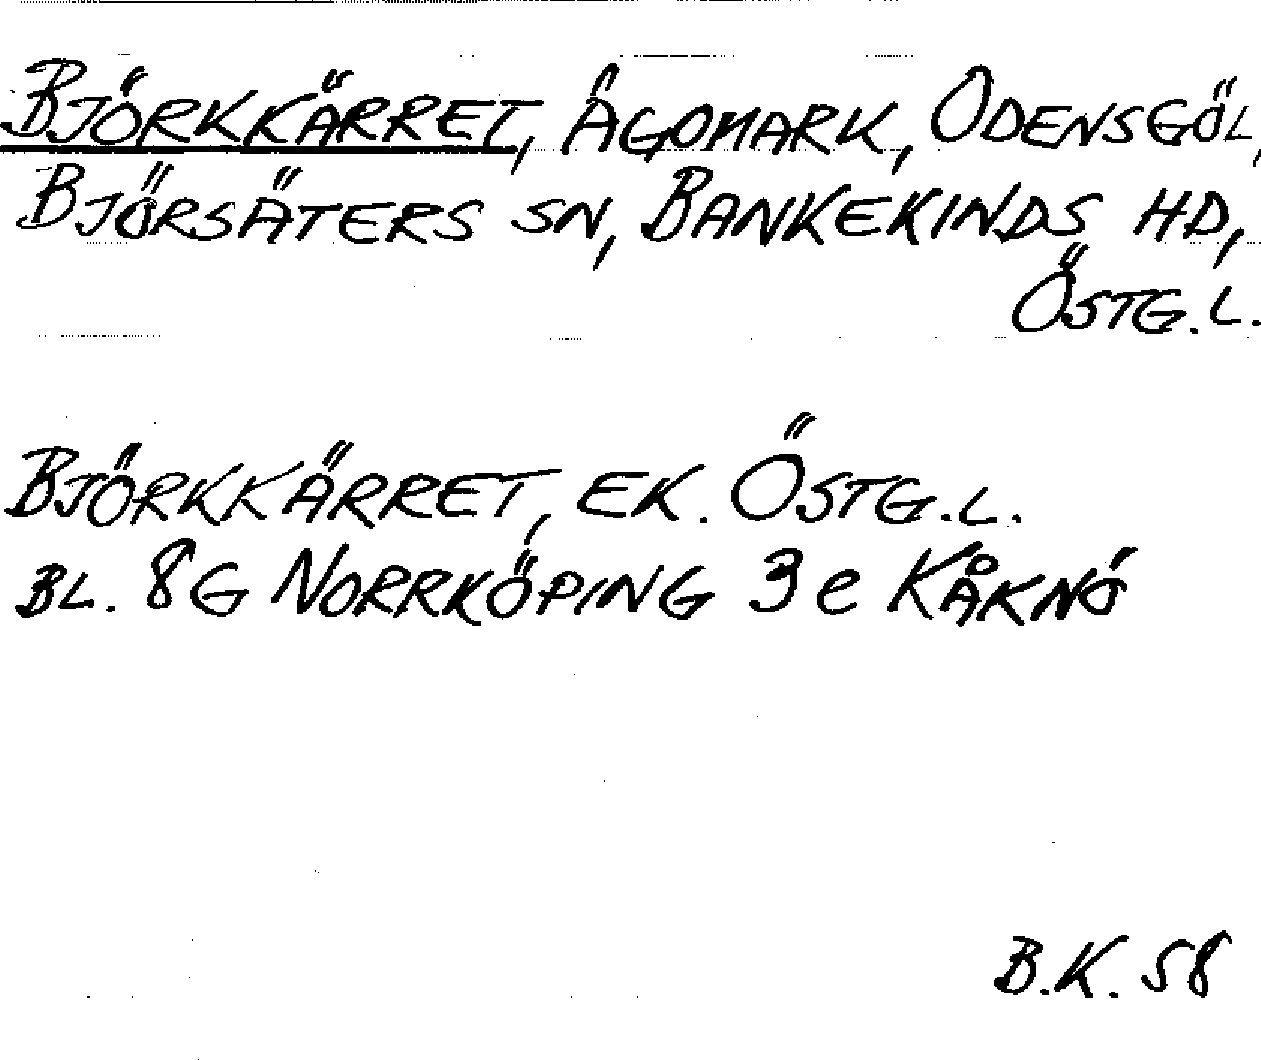 BJÖRKKÄRRET, ÄGOMARK, ODENSGÖL,
BJÖRSÄTERS SN, BANKEKINDS HD,
ÖSTG.L.
BJÖRKKÄRRET, EK. ÖSTG.L.
BL. 8G NORRKÖPING 3e KÅKNÖ
B.K. 58